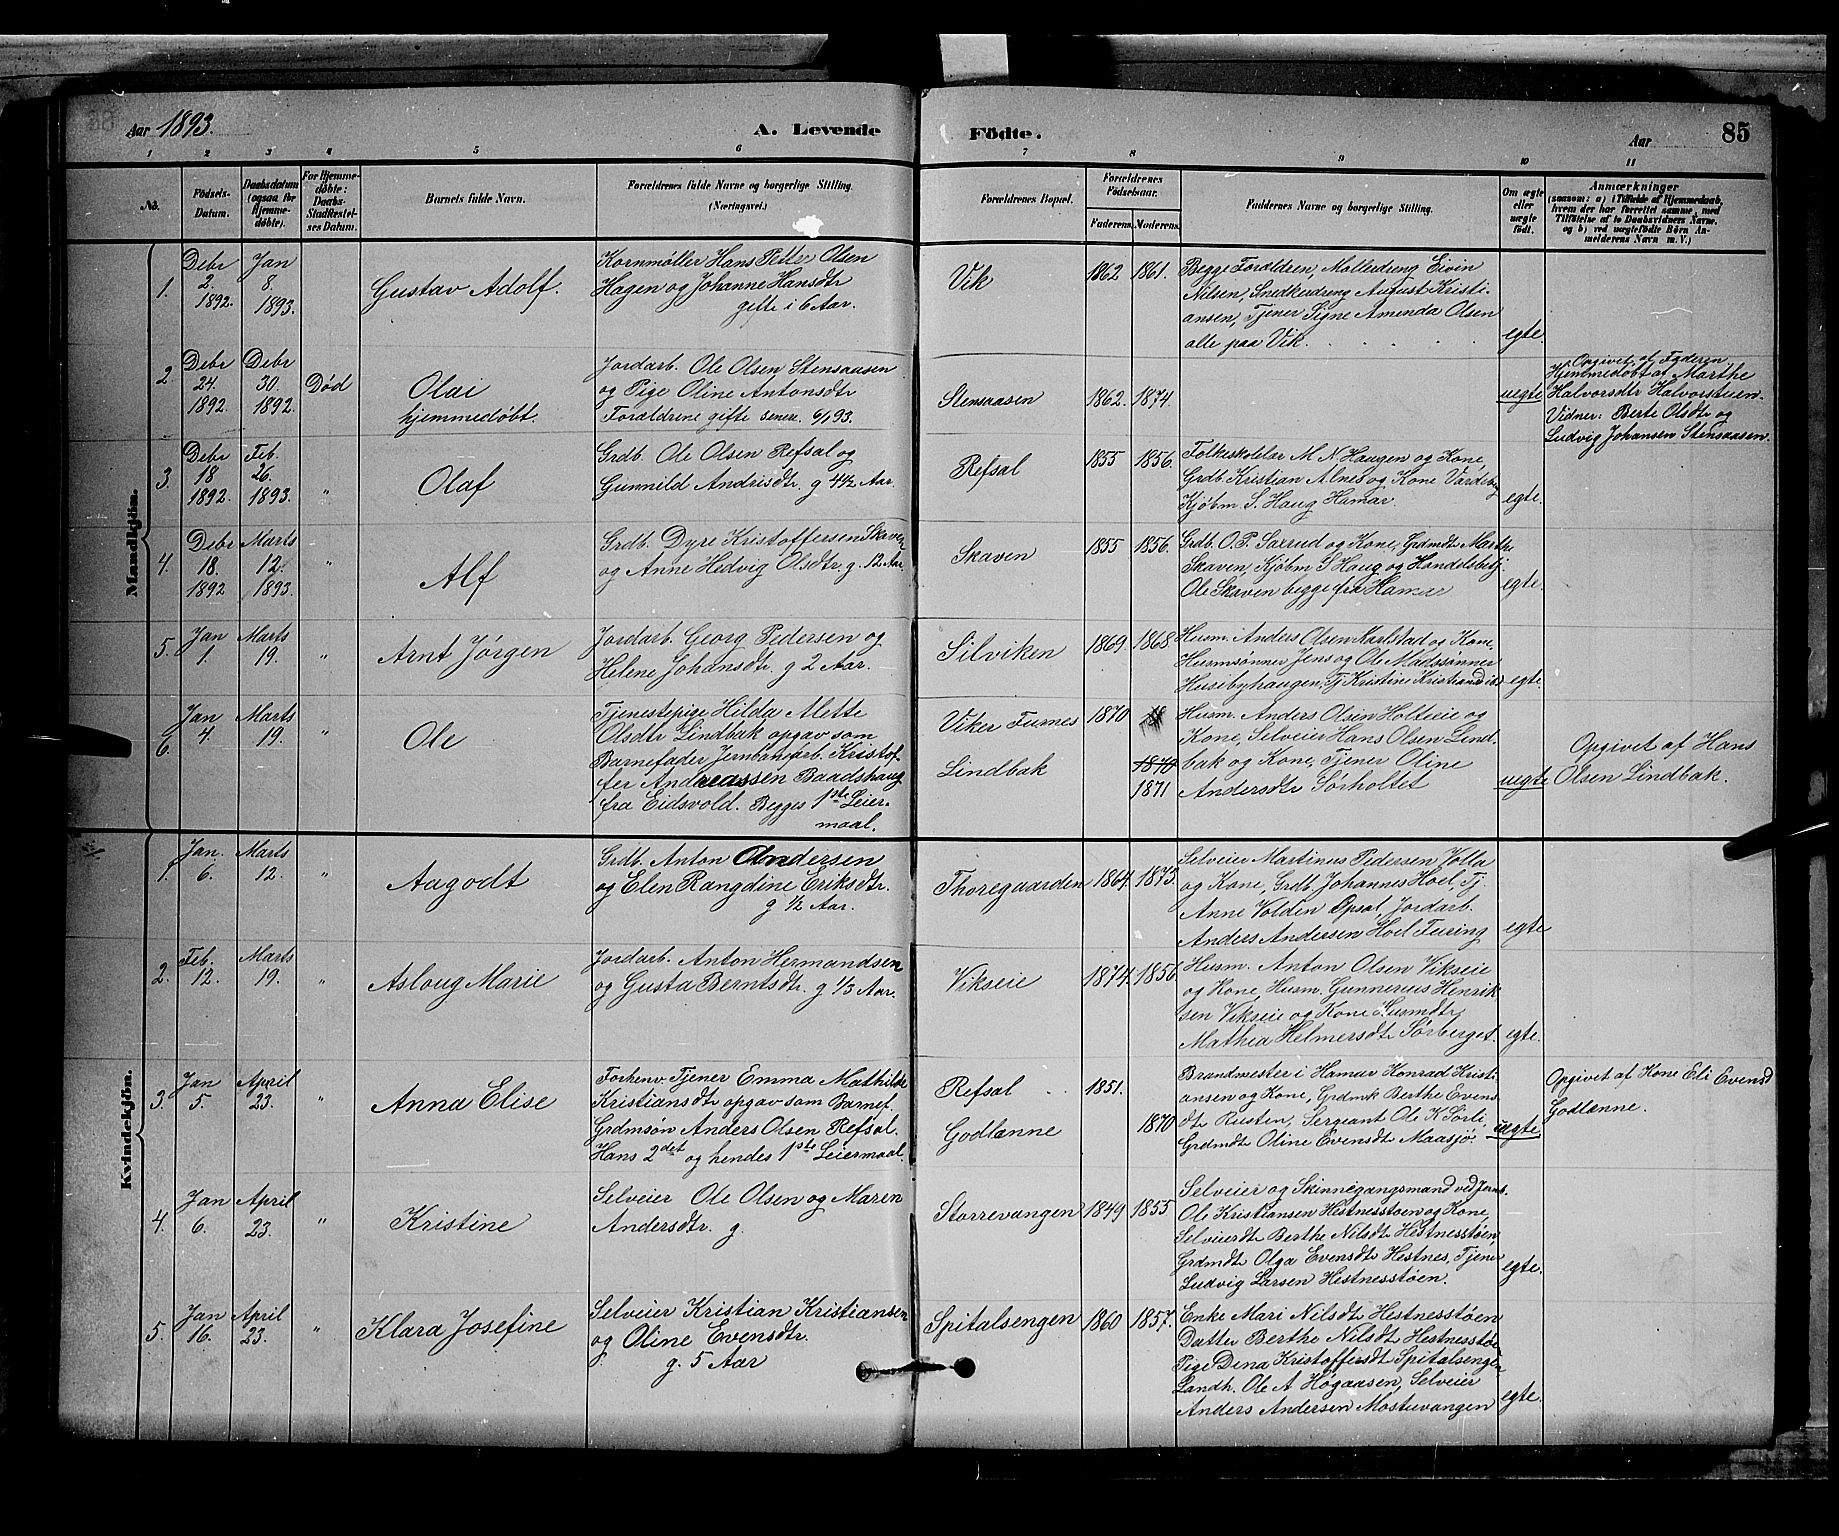 Aar 1893.
A. Levende
Födte.
Aar
85
1 2 3 4 5 6 7 8 9 10 11
No.
Födsels-
Datum.
Daabsdatum
(ogsaa for
Hjemme-
döbte).
For Hjemme-
døbte:
Daabs-
Stadfæstel-
ses Datum.
Barnets fulde Navn.
Forældrenes fulde Navne og borgerlige Stilling.
(Næringsvei.)
Forældrenes Bopæl.
Forældrenes
Födselsaar.
Faderens.
Moderens.
Faddernes Navne og borgerlige Stilling.
Om ægte
eller
uægte
född.
Anmærkninger
(saasom: a) i Tilfælde af Hjemmedaab,
hvem der har forrettet samme, med
Tilföielse af to Daabsvidners Navne,
og b) ved uægtefödte Börn An-
melderens Navn m. V.)
Mandkjön.
1.
Debr
2.
1892.
Jan
8.
1893.
Gustav Adolf.
Kornmøller Hans Petter Olsen
Hagen og Johanne Hansdtr
gifte i 6 Aar.
Vik
1862
1861.
Begge Forældren, Mølledreng Eivin
Nilsen, Snedkerdreng August Kristi-
ansen, Tjener Signe Amenda Olsen
alle paa Vik.
egte.
2.
Debr
24.
1892
Debr
30.
1892.
Död
Olai
hjemmedøbt.
Jordarb. Ole Olsen Stensaasen
og Pige Oline Antonsdtr
Forældrene gifte senere 6/1 93.
Stensaasen
1862.
1874.
uegte
Opgivet af Faderen
Hjemmedøbt af Marthe
Halvorsdtr Halvorstuen.
Vidner: Berte Olsdtr og
Ludvig Johansen Stensaasen.
3.
Debr
18
1892.
Feb.
26.
1893.
"
Olaf
Grdb. Ole Olsen Refsal og
Gunnild Andrisdtr g 4½ Aar.
Refsal
1855
1856.
Folkeskolelær M N Haugen og Kone,
Grdb. Kristian Alnes og Kone Vardeberg
Kjøbm S. Haug Hamar.
egte.
4.
Debr
18.
1892
Marts
12.
1893.
"
Alf
Grdb. Dyre Kristoffersen Skaven
og Anne Hedvig Olsdtr. g. 12 Aar.
Skaven
1855
1856.
Grdb. O. P. Saxrud og Kone, Grdmdt Marthe
Skaven, Kjøbm S Haug og Handelsbetj.
Ole Skaven begge fra Hamar
egte.
5.
Jan
1.
Marts
19.
"
Arnt Jørgen
Jordarb. Georg Pedersen og
Helene Johansdtr. g 2 Aar.
Silviken
1869
1868
Husm. Anders Olsen Karlstad og Kone,
Husmsønner Jens og Ole Madssønner
Husebyhaugen, Tj Kristine Kristiansd ibd
egte.
6.
Jan
4.
Marts
19.
"
Ole
Tjenestepige Hilda Mette
Olsdtr Lindbak opgav som
Barnefader Jernbanearb. Kristof-
fer Andreassen Baadshaug
fra Eidsvold. Begges 1ste Leier-
maal.
Viker Furnes
Lindbak
1870
1870
1871
Husm. Anders Olsen Holteeie og
Kone, Selveier Hans Olsen Lind-
bak og Kone, Tjener Oline
Andersdtr Sørholtet
uegte
Opgivet af Hans
Olsen Lindbak.
Kvindekjön.
1.
Jan.
6.
Marts
12.
"
Aagodt
Grdb. Anton Andersen
og Elen Rangdine Eriksdtr.
g ½ Aar.
Thoregaarden
1864.
1873.
Selveier Martinus Pedersen Volla
og Kone, Grdb. Johannes Hoel, Tj.
Anne Volden Opsal, Jordarb.
Anders Andersen Hoel Furing
egte
2.
Feb.
12.
Marts
19.
"
Asloug Marie
Jordarb. Anton Hermandsen
og Gusta Berntsdtr. g 1/3 Aar.
Vikseie
1874.
1856.
Husm. Anton Olsen Vikseie
og Kone, Husm. Gunnerius Henrik-
sen Vikseie og Kone, Husmdtr
Mathea Helmersdtr Sørberget.
egte.
3.
Jan
5.
April
23.
"
Anna Elise
Forhenv. Tjener Emma Mathilde
Kristiansdtr opgav som Barnef.
Grdmsøn Anders Olsen Refsal.
Hans 2det og hendes 1ste Leiermaal.
Refsal
Godlænne
1851.
1870
Brandmester i Hamar Konrad Kristi-
ansen og Kone, Grdmk Berthe Evens-
dtr Rusten, Sergeant Ole K Sørli
Grdmdtr Oline Evensdtr Maasjø.
uegte
Opgivet af Kone Eli Evensd
Godlænne.
4.
Jan
6.
April
23.
"
Kristine
Selveier Ole Olsen og Maren
Andersdtr. g.
Storrevangen
1849
1855
Selveier og Skinnegangsmand ved Jernb.
Ole Kristiansen Hestnesstøen og Kone,
Selveierdt Berthe Nilsdt Hestnesstøen,
Grdmdtr Olga Evensdtr Hestnes, Tjener
Ludvig Larsen Hestnesstøen.
egte.
5.
Jan
16.
April
23.
"
Klara Josefine
Selveier Kristian Kristiansen
og Oline Evensdtr.
g. 5 Aar
Spitalsengen
1860
1857.
Enke Mari Nilsdt Hestnesstøen
Datter Berthe Nilsdt Hestnesstøe
Pige Dina Kristoffersdt Spitalsengen
Landh. Ole A Høgaasen, Selveier
Anders Andersen Mostuevangen
egte.